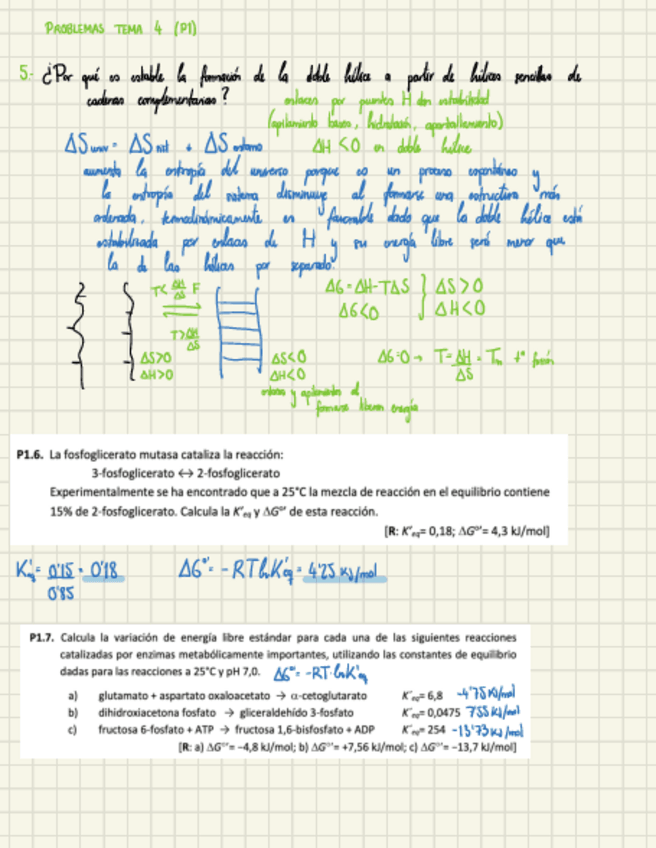 PROBLEMAS TEMA 4 (P1)
5.- ¿Por qué es estable la formación de la doble hélice a partir de hélices sencillas de
cadenas complementarias?
enlaces por puentes H dan estabilidad
(apilamiento bases, hidratación, apantallamiento)
ΔS univ = ΔS sist + ΔS entorno
ΔH < 0 en doble hélice
aumenta la entropía del universo porque es un proceso espontáneo y
la entropía del sistema disminuye al formarse una estructura más
ordenada, termodinámicamente es favorable dado que la doble hélice está
estabilizada por enlaces de H y su energía libre será menor que
la de las hélices por separado.
T< ΔH/ΔS F
T> ΔH/ΔS
ΔS>0
ΔH>0
ΔS<0
ΔH<0
enlaces y apilamientos al
formarse liberan energía
ΔG = ΔH-TΔS } ΔS>0
ΔG<0 ΔH<0
ΔG=0 → T = ΔH/ΔS = Tm tª fusión
P1.6. La fosfoglicerato mutasa cataliza la reacción:
3-fosfoglicerato ↔ 2-fosfoglicerato
Experimentalmente se ha encontrado que a 25°C la mezcla de reacción en el equilibrio contiene
15% de 2-fosfoglicerato. Calcula la K'eq y ΔG°' de esta reacción.
[R: K'eq= 0,18; ΔG°'= 4,3 kJ/mol]
K'eq = 0'15/0'85 = 0'18 ΔG°' = -RT ln K'eq = 4'25 KJ/mol
P1.7. Calcula la variación de energía libre estándar para cada una de las siguientes reacciones
catalizadas por enzimas metabólicamente importantes, utilizando las constantes de equilibrio
dadas para las reacciones a 25°C y pH 7,0. ΔG°' = -RT·lnK'eq
a) glutamato + aspartato oxaloacetato → α-cetoglutarato K'eq= 6,8 -4'75 KJ/mol
b) dihidroxiacetona fosfato → gliceraldehído 3-fosfato K'eq= 0,0475 7'55 KJ/mol
c) fructosa 6-fosfato + ATP → fructosa 1,6-bisfosfato + ADP K'eq= 254 -13'73 KJ/mol
[R: a) ΔG°'= −4,8 kJ/mol; b) ΔG°'= +7,56 kJ/mol; c) ΔG°'= −13,7 kJ/mol]